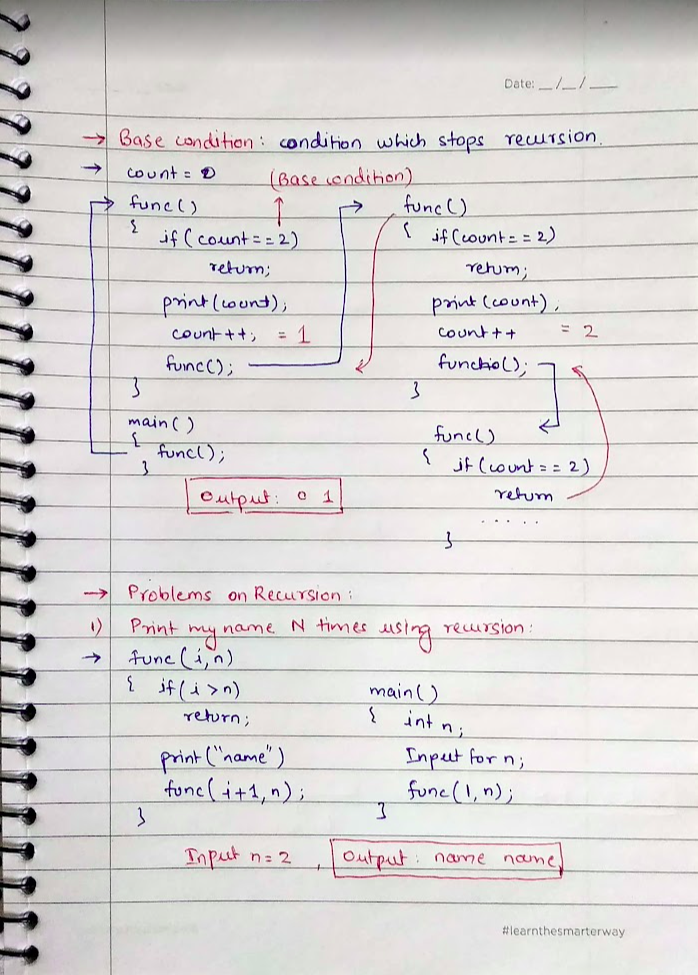 Date: __/__/____
→ Base condition: condition which stops recursion.
→ count = 0
(Base condition)
func()
{ if(count==2)
return;
print(count);
count++; = 1
func();
}
main()
{ func();
}
Output: 0 1
func()
{ if(count==2)
return;
print(count),
count++ = 2
functio();
}
func()
{ if(count==2)
return
. . . . .
}
→ Problems on Recursion:
1) Print my name N times using recursion:
→ func(i,n)
{ if(i>n)
return;
print("name")
func(i+1,n);
}
main()
{ int n;
Input for n;
func(1,n);
}
Input n=2, Output: name name
#learnthesmarterway